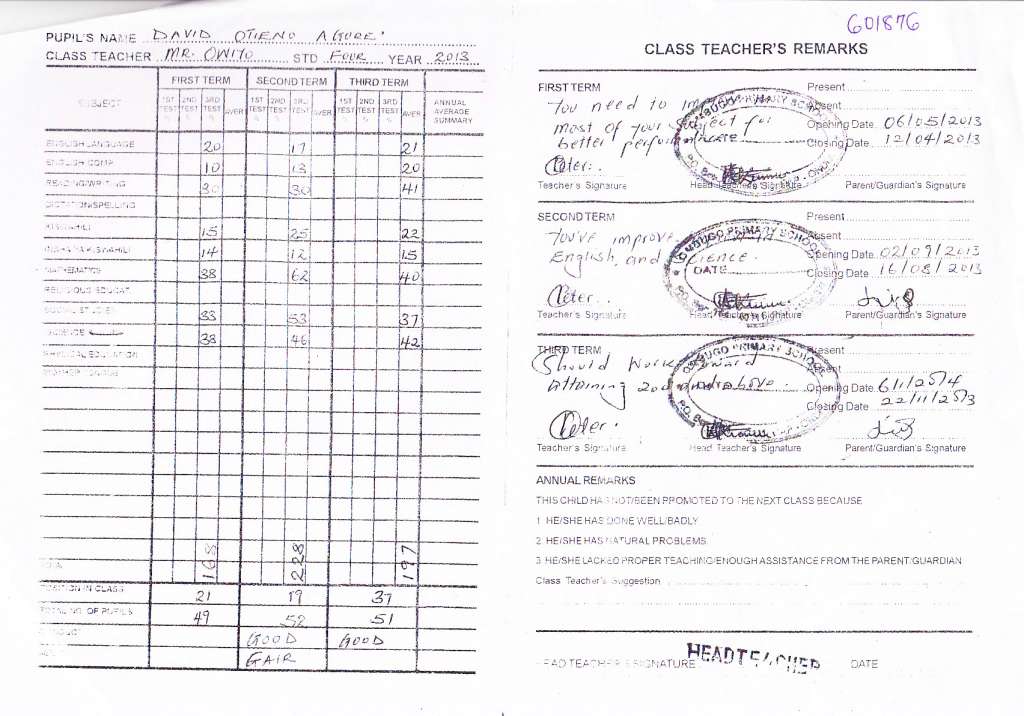 PUPIL'S NAME DAVID OTIENO AGURE'
CLASS TEACHER MR. OWITO STD FOUR YEAR 2013
SUBJECT FIRST TERM SECOND TERM THIRD TERM ANNUAL AVERAGE SUMMARY
1ST TEST 2ND TEST 3RD TEST AVER 1ST TEST 2ND TEST 3RD TEST AVER 1ST TEST 2ND TEST 3RD TEST AVER
ENGLISH LANGUAGE 20 17 21
ENGLISH COMP 10 13 20
READING/WRITING 30 30 41
DICTATION/SPELLING
KISWAHILI 15 25 22
INSHA YA KISWAHILI 14 12 15
MATHEMATICS 38 62 40
RELIGIOUS EDUCAT
SOCIAL STUDIES 33 53 37
SCIENCE 38 46 42
PHYSICAL EDUCATION
MOTHER TONGUE
TOTAL 168 228 197
POSITION IN CLASS 21 19 37
TOTAL NO. OF PUPILS 49 52 51
GOOD GOOD
GAIR
601876
CLASS TEACHER'S REMARKS
FIRST TERM Present
You need to Absent
most of your subject for Opening Date 06/05/2013
better Closing Date 12/04/2013
Teacher's Signature Head Teacher's Signature Parent/Guardian's Signature
SECOND TERM Present
You've improve Absent
English, and Science. Opening Date 02/09/2013
DATE Closing Date 16/08/2013
Teacher's Signature Head Teacher's Signature Parent/Guardian's Signature
THIRD TERM Present
Should work toward Absent
Attaining 200 and above. Opening Date 6/1/2014
Closing Date 22/11/2013
Teacher's Signature Head Teacher's Signature Parent/Guardian's Signature
ANNUAL REMARKS
THIS CHILD HAS NOT/BEEN PROMOTED TO THE NEXT CLASS BECAUSE
1 HE/SHE HAS DONE WELL/BADLY
2 HE/SHE HAS NATURAL PROBLEMS
3 HE/SHE LACKED PROPER TEACHING/ENOUGH ASSISTANCE FROM THE PARENT/GUARDIAN
Class Teacher's Suggestion
HEAD TEACHER'S SIGNATURE HEADTEACHER DATE